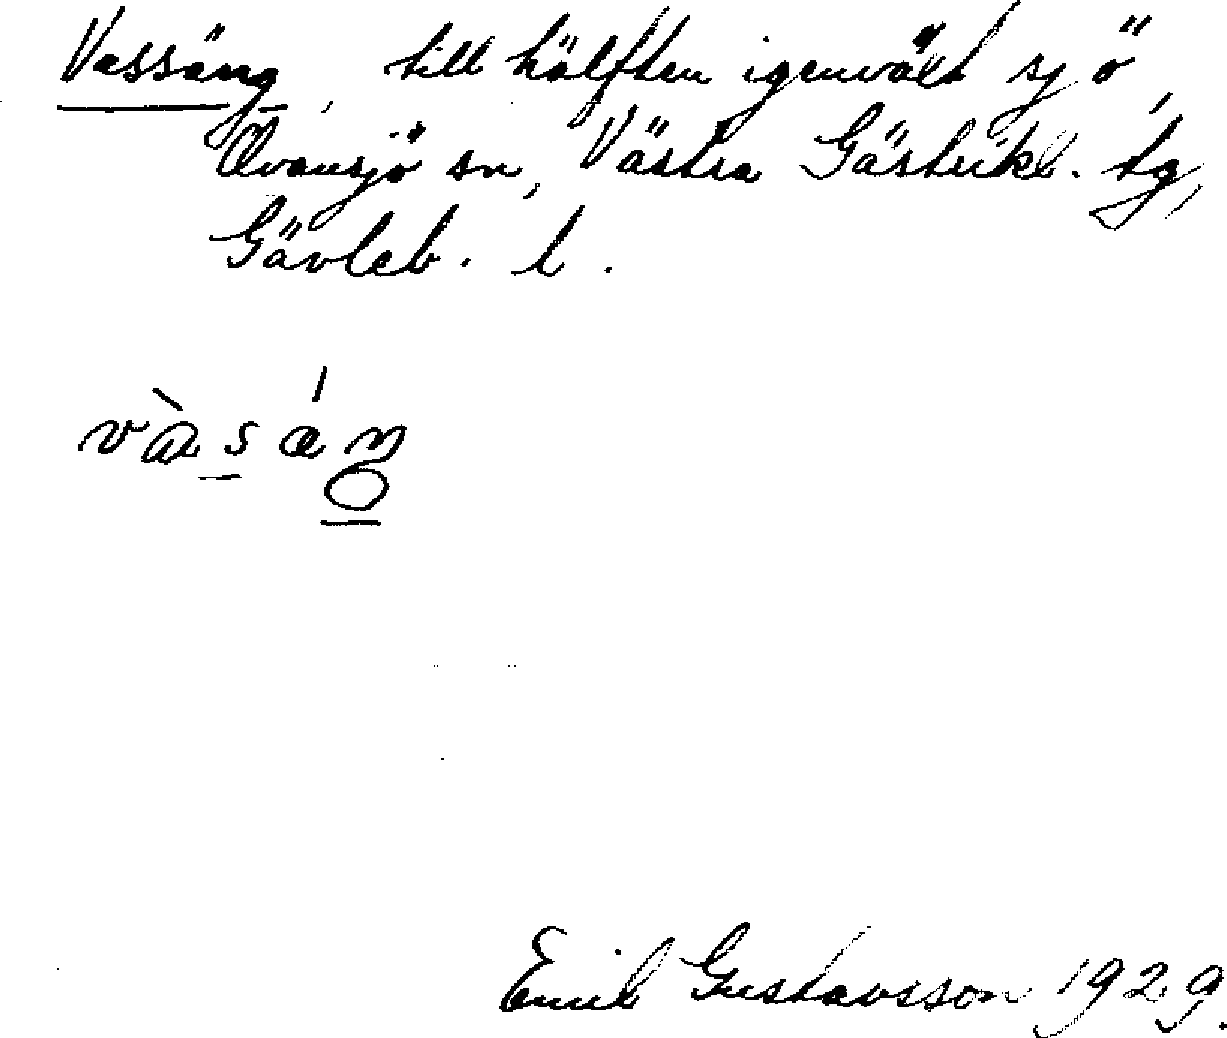 Vassäng, till hälften igenvält sjö,
Ovansjö sn, Västra Gästrikl. tg,
Gävleb. l.
vàsáŋ
Emil Gustavsson 1929.